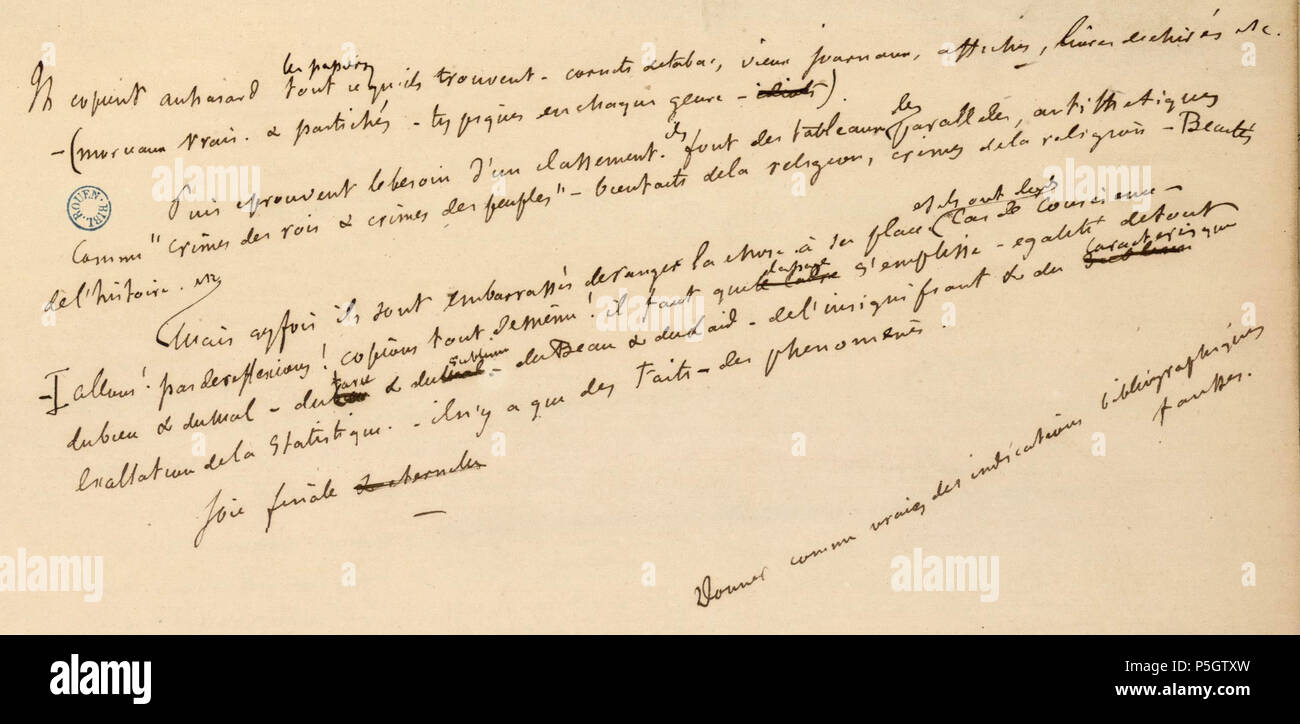 les papiers
Ils copient au hasard tout ce qu'ils trouvent - cornets de tabac, vieux journaux, affiches, livres déchirés etc.
- (morceaux vrais. & pastichés - typiques en chaque genre - idiots).
ils les
Puis éprouvent le besoin d'un classement. font des tableaux parallèles, antithetiques
comme "crimes des rois & crimes des peuples" - bienfaits de la religion, crimes de la religion - Beautés
de l'histoire. etc
et ils ont des
Mais qqfois ils sont embarrassés de ranger la chose à sa place Cas de conscience -
la page caracteristique
- allons! pas de reflexions! copions tout de même! il faut que le cadre s'emplisse - egalité de tout
farce sublime
du bien & du mal - du & du - du Beau & du Laid - de l'insignifiant & du sublime
exaltation de la Statistique. - il n'y a que des Faits - des phenomenes.
Joie finale & eternelle
Donner comme vraies des indications bibliographiques
fausses.
ROUEN BIBL.
alamy
Image ID: P5GTXW
www.alamy.com